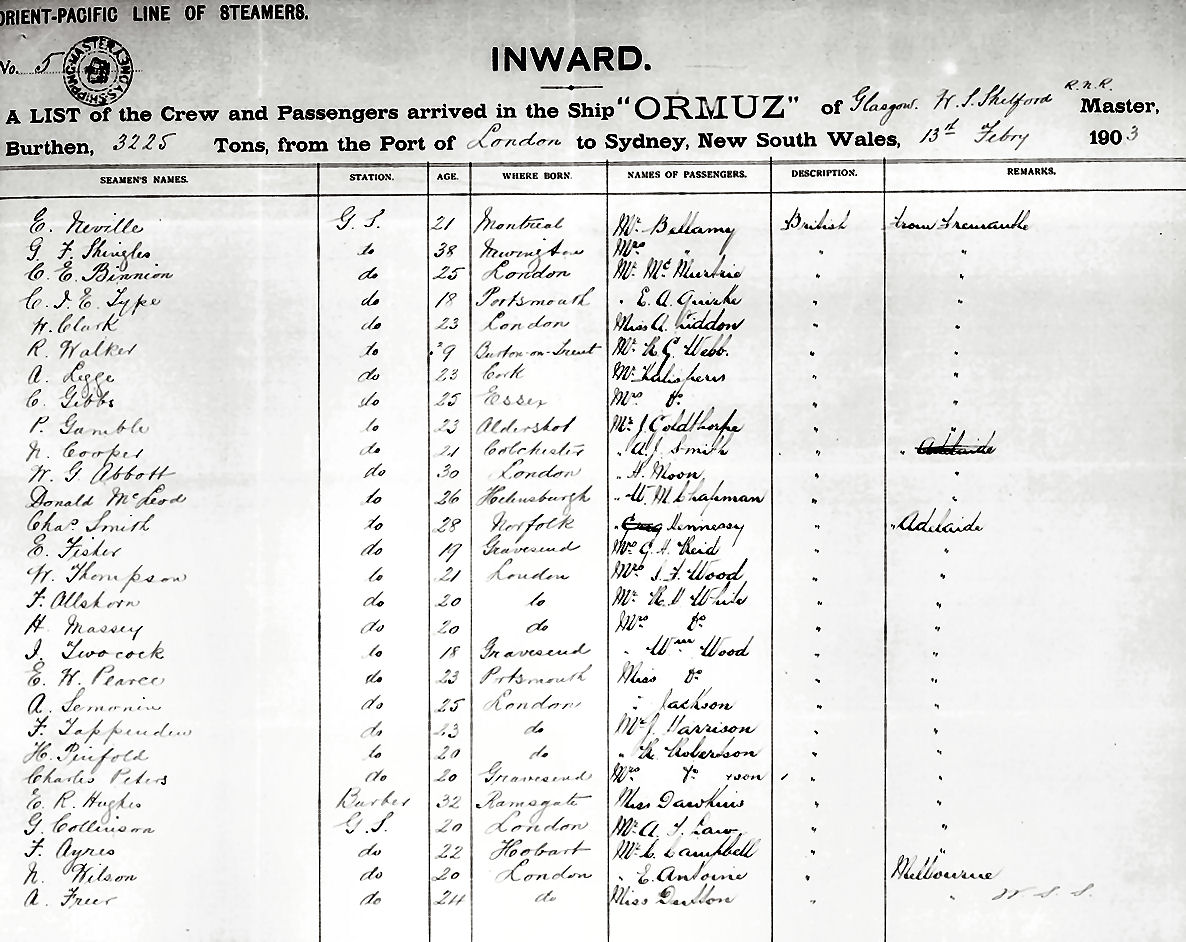 ORIENT-PACIFIC LINE OF STEAMERS.
No. 5
SHIPPING MASTER
INWARD.
A LIST of the Crew and Passengers arrived in the Ship "ORMUZ" of Glasgow. W. S. Shelford R.N.R. Master,
Burthen, 3225 Tons, from the Port of London to Sydney, New South Wales, 13th Febry 1903
SEAMEN'S NAMES. STATION. AGE. WHERE BORN. NAMES OF PASSENGERS. DESCRIPTION. REMARKS.
E. Neville G. S. 21 Montreal Mr. Bellamy British From Fremantle
G. F. Shingles do 38 Mrs " " "
C. E. Binnion do 25 London Mr. McMurtrie " "
C. I. E. Type do 18 Portsmouth " E. A. Quirke " "
W. Clark do 23 London Miss A. Siddon " "
R. Walker do 9 Burton-on-Trent Mr. Webb. " "
A. Legge do 23 Cork Mr. " "
C. Gibbs do 25 Essex Mrs do " "
P. Gamble do 23 Aldershot Mr. J. Goldthorpe " "
N. Cooper do 21 Colchester " A. J. Smith " " Adelaide
W. G. Abbott do 30 London " H. Moon " "
Donald McLeod do 26 Helensburgh " W. M. Chapman " "
Chas. Smith do 28 Norfolk " Hennessy " " Adelaide
E. Fisher do 19 Gravesend Mrs G. H. Reid " "
W. Thompson do 21 London Mrs S. F. Wood " "
F. Allshorn do 20 do Mr. White " "
H. Massey do 20 do Mrs do " "
I. Twocock do 18 Gravesend " Wm Wood " "
E. W. Pearce do 23 Portsmouth Miss do " "
A. Semonin do 25 London " Jackson " "
F. Tappenden do 23 do Mr. J. Harrison " "
H. Pinfold do 20 do " R. Robertson " "
Charles Peters do 20 Gravesend Mrs do rson " "
E. R. Hughes Barber 32 Ramsgate Miss Dawkins " "
G. Collinson G. S. 20 London Mr. A. F. Law " "
F. Ayres do 22 Hobart Mr. C. Campbell " "
N. Wilson do 20 London " E. Antoine " Melbourne
A. Freer do 24 do Miss Dutton " " W. S. S.